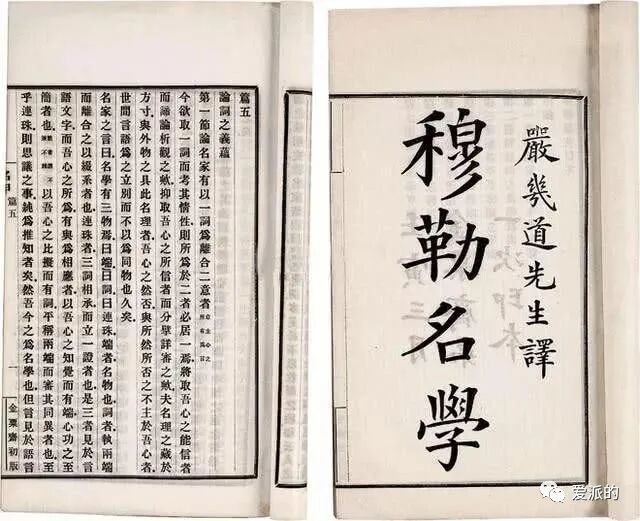 嚴幾道先生譯
穆勒名學
篇五
論詞之義蘊
第一節論名家有以一詞爲離合二意者
今欲取一詞而考其情性則所爲於二者必居一焉將取吾心之能信者
而諦論析觀之歟抑取吾心之所信者而分擘詳審之歟夫名理之藏於
方寸與外物之具此名理者吾心之然否與所然所否之不主於吾心者
世間言語爲之立別而不以爲同物也久矣
名家之言曰名學有三物焉曰端曰詞曰連珠端者名物也詞者執兩端
而離合之以綴系者也連珠者三詞相承而立一證者也是三者見於言
語文字而吾心之所爲有與爲相應者以吾心之知覺而有端心功之至
簡者也以吾心之比擬而有詞平稱兩端而審其同異者也至
乎連珠則思議之事純爲推知者矣然吾今之爲名學也但言見於語言
篇五
一
金粟齋初版
爱派的